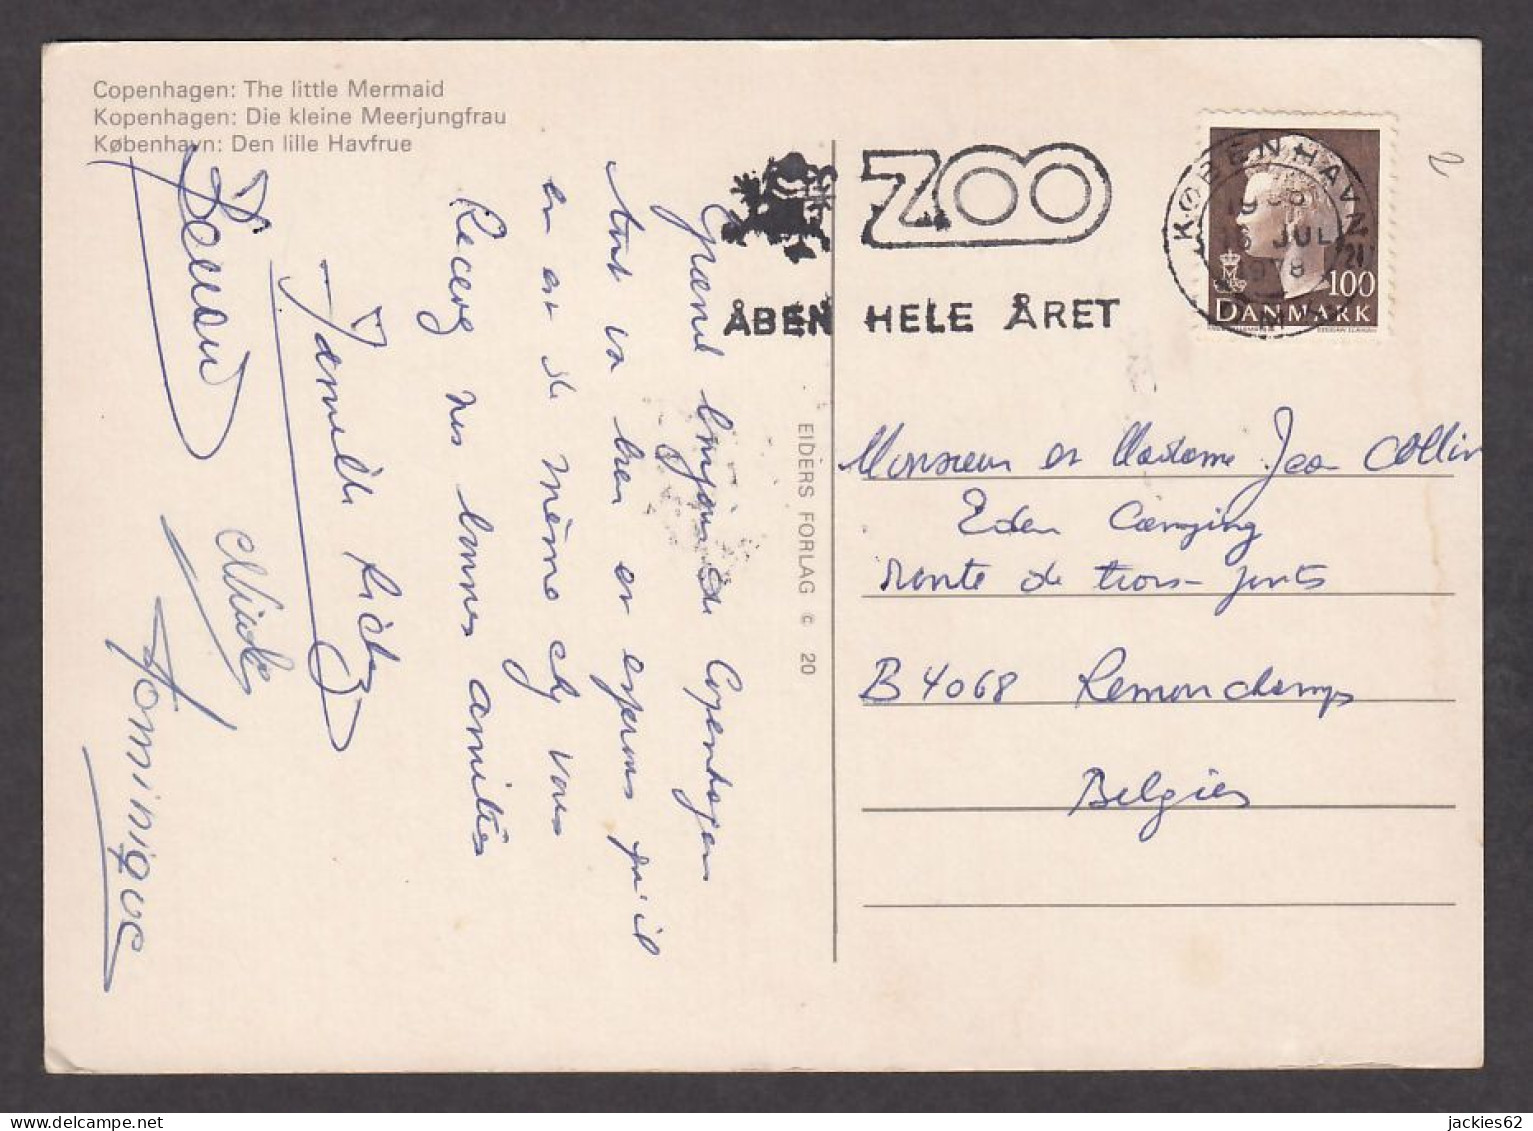 Copenhagen: The little Mermaid
Kopenhagen: Die kleine Meerjungfrau
København: Den lille Havfrue
Grand bonjour de Copenhagen
tout va bien et espérons qu'il
en est de même chez vous
Recevez nos bonnes amitiés
Famille
Dominique
EIDERS FORLAG © 20
ZOO
ÅBEN HELE ÅRET
KØBENHAVN
JUL
1978
100
DANMARK
2
Monsieur et Madame Jean Collin
Eden Camping
route de trois-ponts
B 4068 Remouchamps
Belgien
jackies62